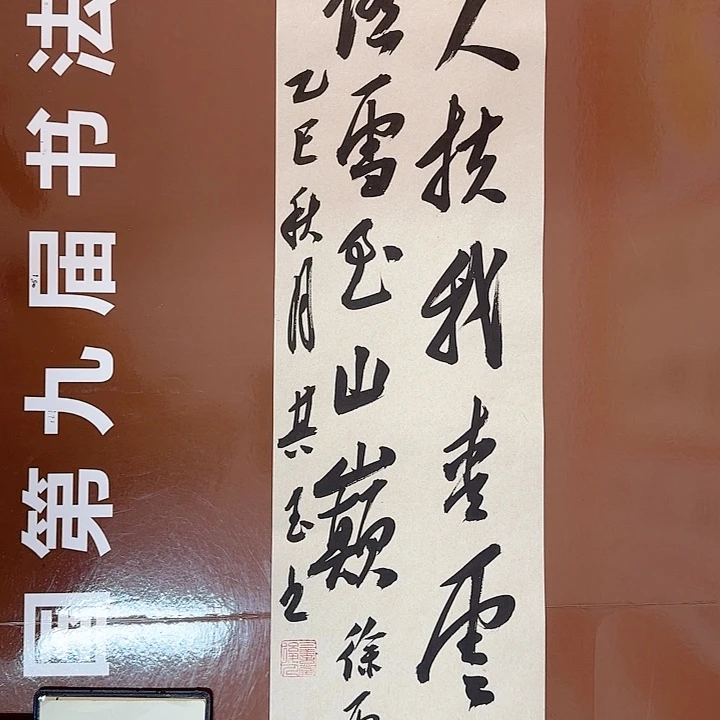 国第九届书法
人扶我青云
踏雪至山巅 徐
乙巳秋月 其玉书